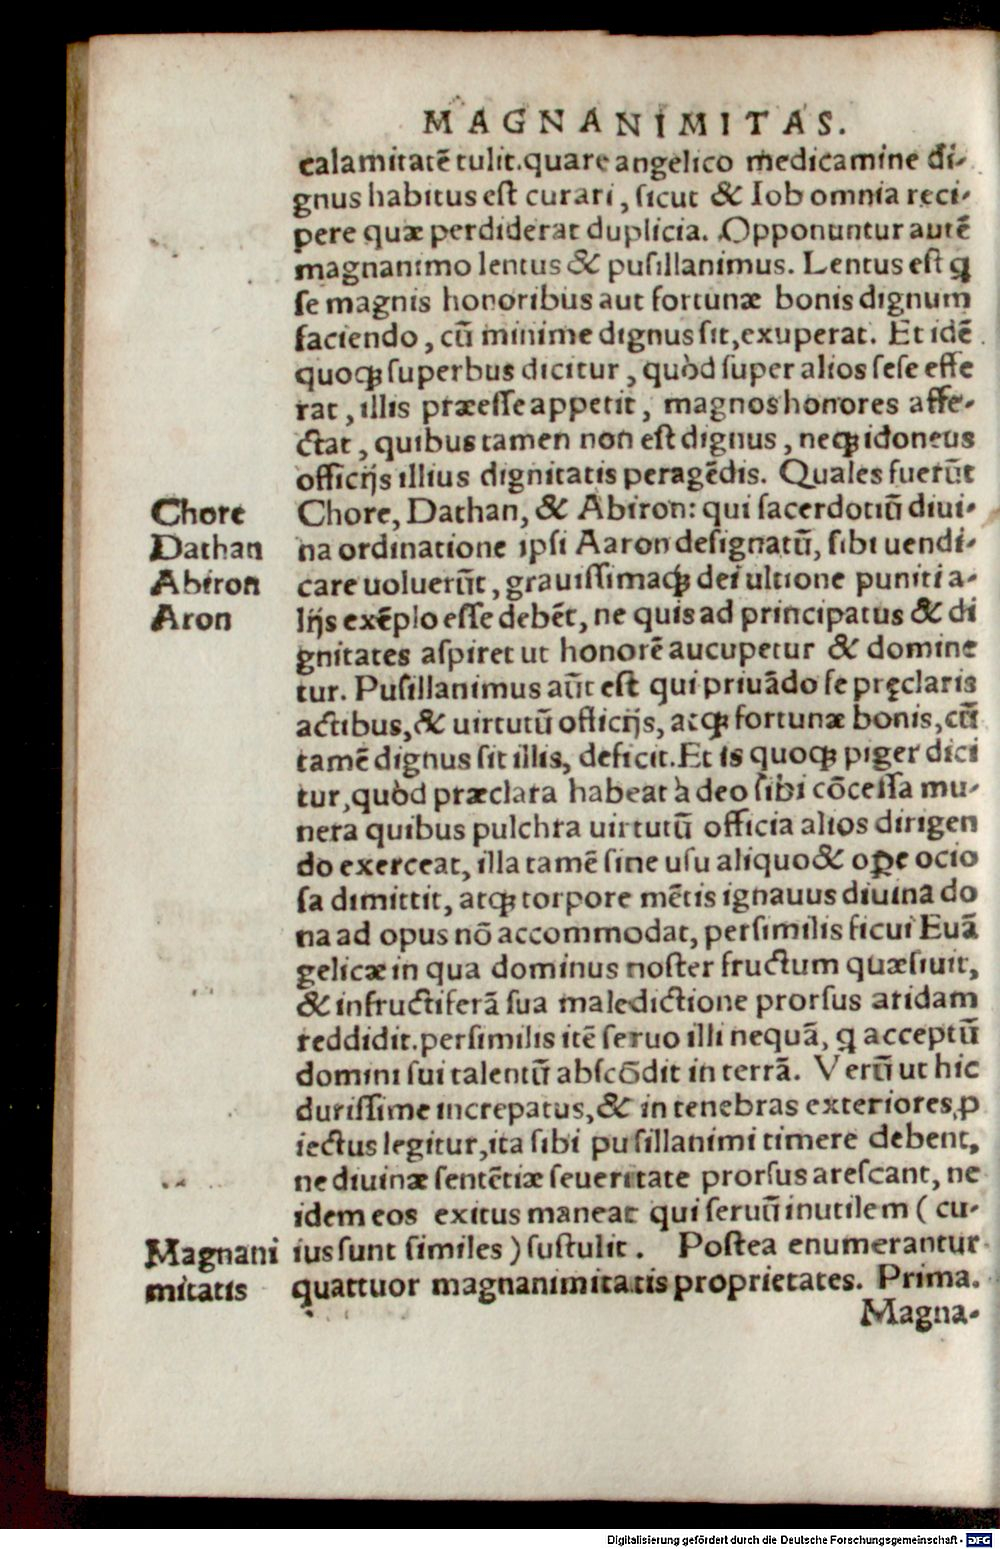 MAGNANIMITAS.
calamitatē tulit. quare angelico medicamine di-
gnus habitus est curari, sicut & Iob omnia reci-
pere quæ perdiderat duplicia. Opponuntur autē
magnanimo lentus & pusillanimus. Lentus est q
se magnis honoribus aut fortunæ bonis dignum
faciendo, cū minime dignus sit, exuperat. Et idē
quoqꝫ superbus dicitur, quòd super alios sese effe
rat, illis præesse appetit, magnos honores affe-
ctat, quibus tamen non est dignus, neqꝫ idoneus
officijs illius dignitatis peragēdis. Quales fuerūt
Chore
Chore, Dathan, & Abiron: qui sacerdotiū diui-
Dathan
na ordinatione ipsi Aaron designatū, sibi uendi-
Abiron
care uoluerūt, grauissimaqꝫ dei ultione puniti a-
Aron
lijs exēplo esse debēt, ne quis ad principatus & di
gnitates aspiret ut honorē aucupetur & domine
tur. Pusillanimus aūt est qui priuādo se pręclaris
actibus, & uirtutū officijs, atqꝫ fortunæ bonis, cū
tamē dignus sit illis, deficit. Et is quoqꝫ piger dici
tur, quòd præclara habeat à deo sibi cōcessa mu-
nera quibus pulchra uirtutū officia alios dirigen
do exerceat, illa tamē sine usu aliquo & oꝑe ocio
sa dimittit, atqꝫ torpore mētis ignauus diuina do
na ad opus nō accommodat, persimilis ficui Euā
gelicæ in qua dominus noster fructum quæsiuit,
& infructiferā sua maledictione prorsus aridam
reddidit. persimilis itē seruo illi nequā, q acceptū
domini sui talentū abscōdit in terrā. Verū ut hic
durissime increpatus, & in tenebras exteriores ꝓ
iectus legitur, ita sibi pusillanimi timere debent,
ne diuinæ sentētiæ seueritate prorsus arescant, ne
idem eos exitus maneat qui seruū inutilem ( cu-
Magnani
ius sunt similes ) sustulit. Postea enumerantur
mitatis
quattuor magnanimitatis proprietates. Prima.
Magna-
Digitalisierung gefördert durch die Deutsche Forschungsgemeinschaft - DFG